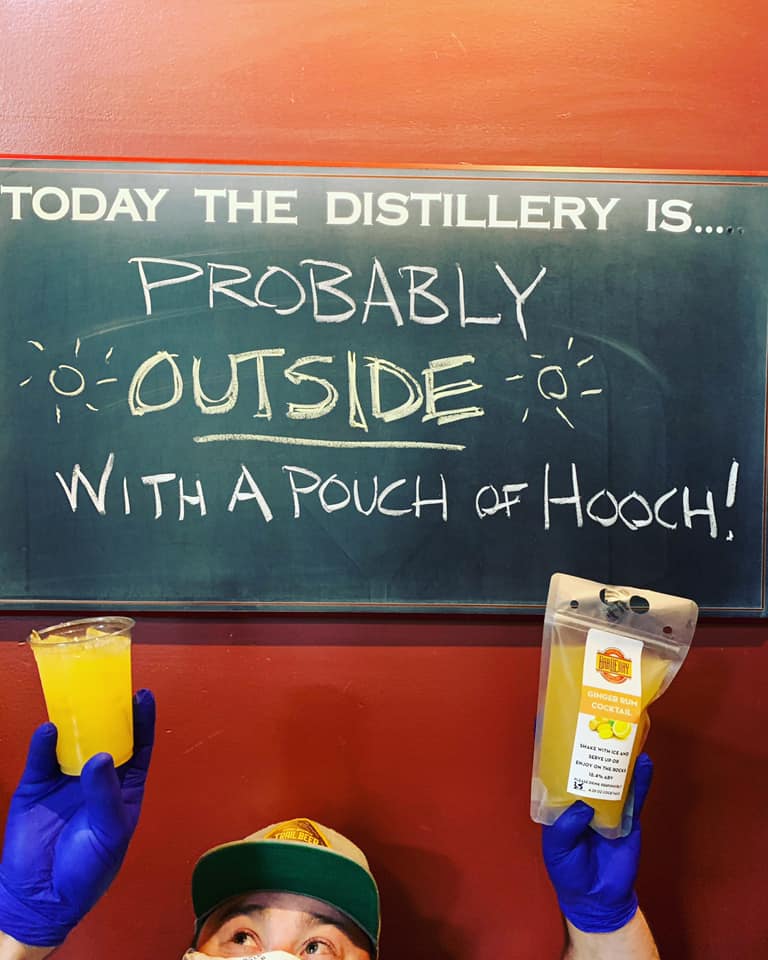 TODAY THE DISTILLERY IS.....
PROBABLY
OUTSIDE
WITH A POUCH OF HOOCH!
GINGER RUM
COCKTAIL
SHAKE WITH ICE AND
SERVE UP OR
ENJOY ON THE ROCKS
PLEASE DRINK RESPONSIBLY
TRAIL BEER